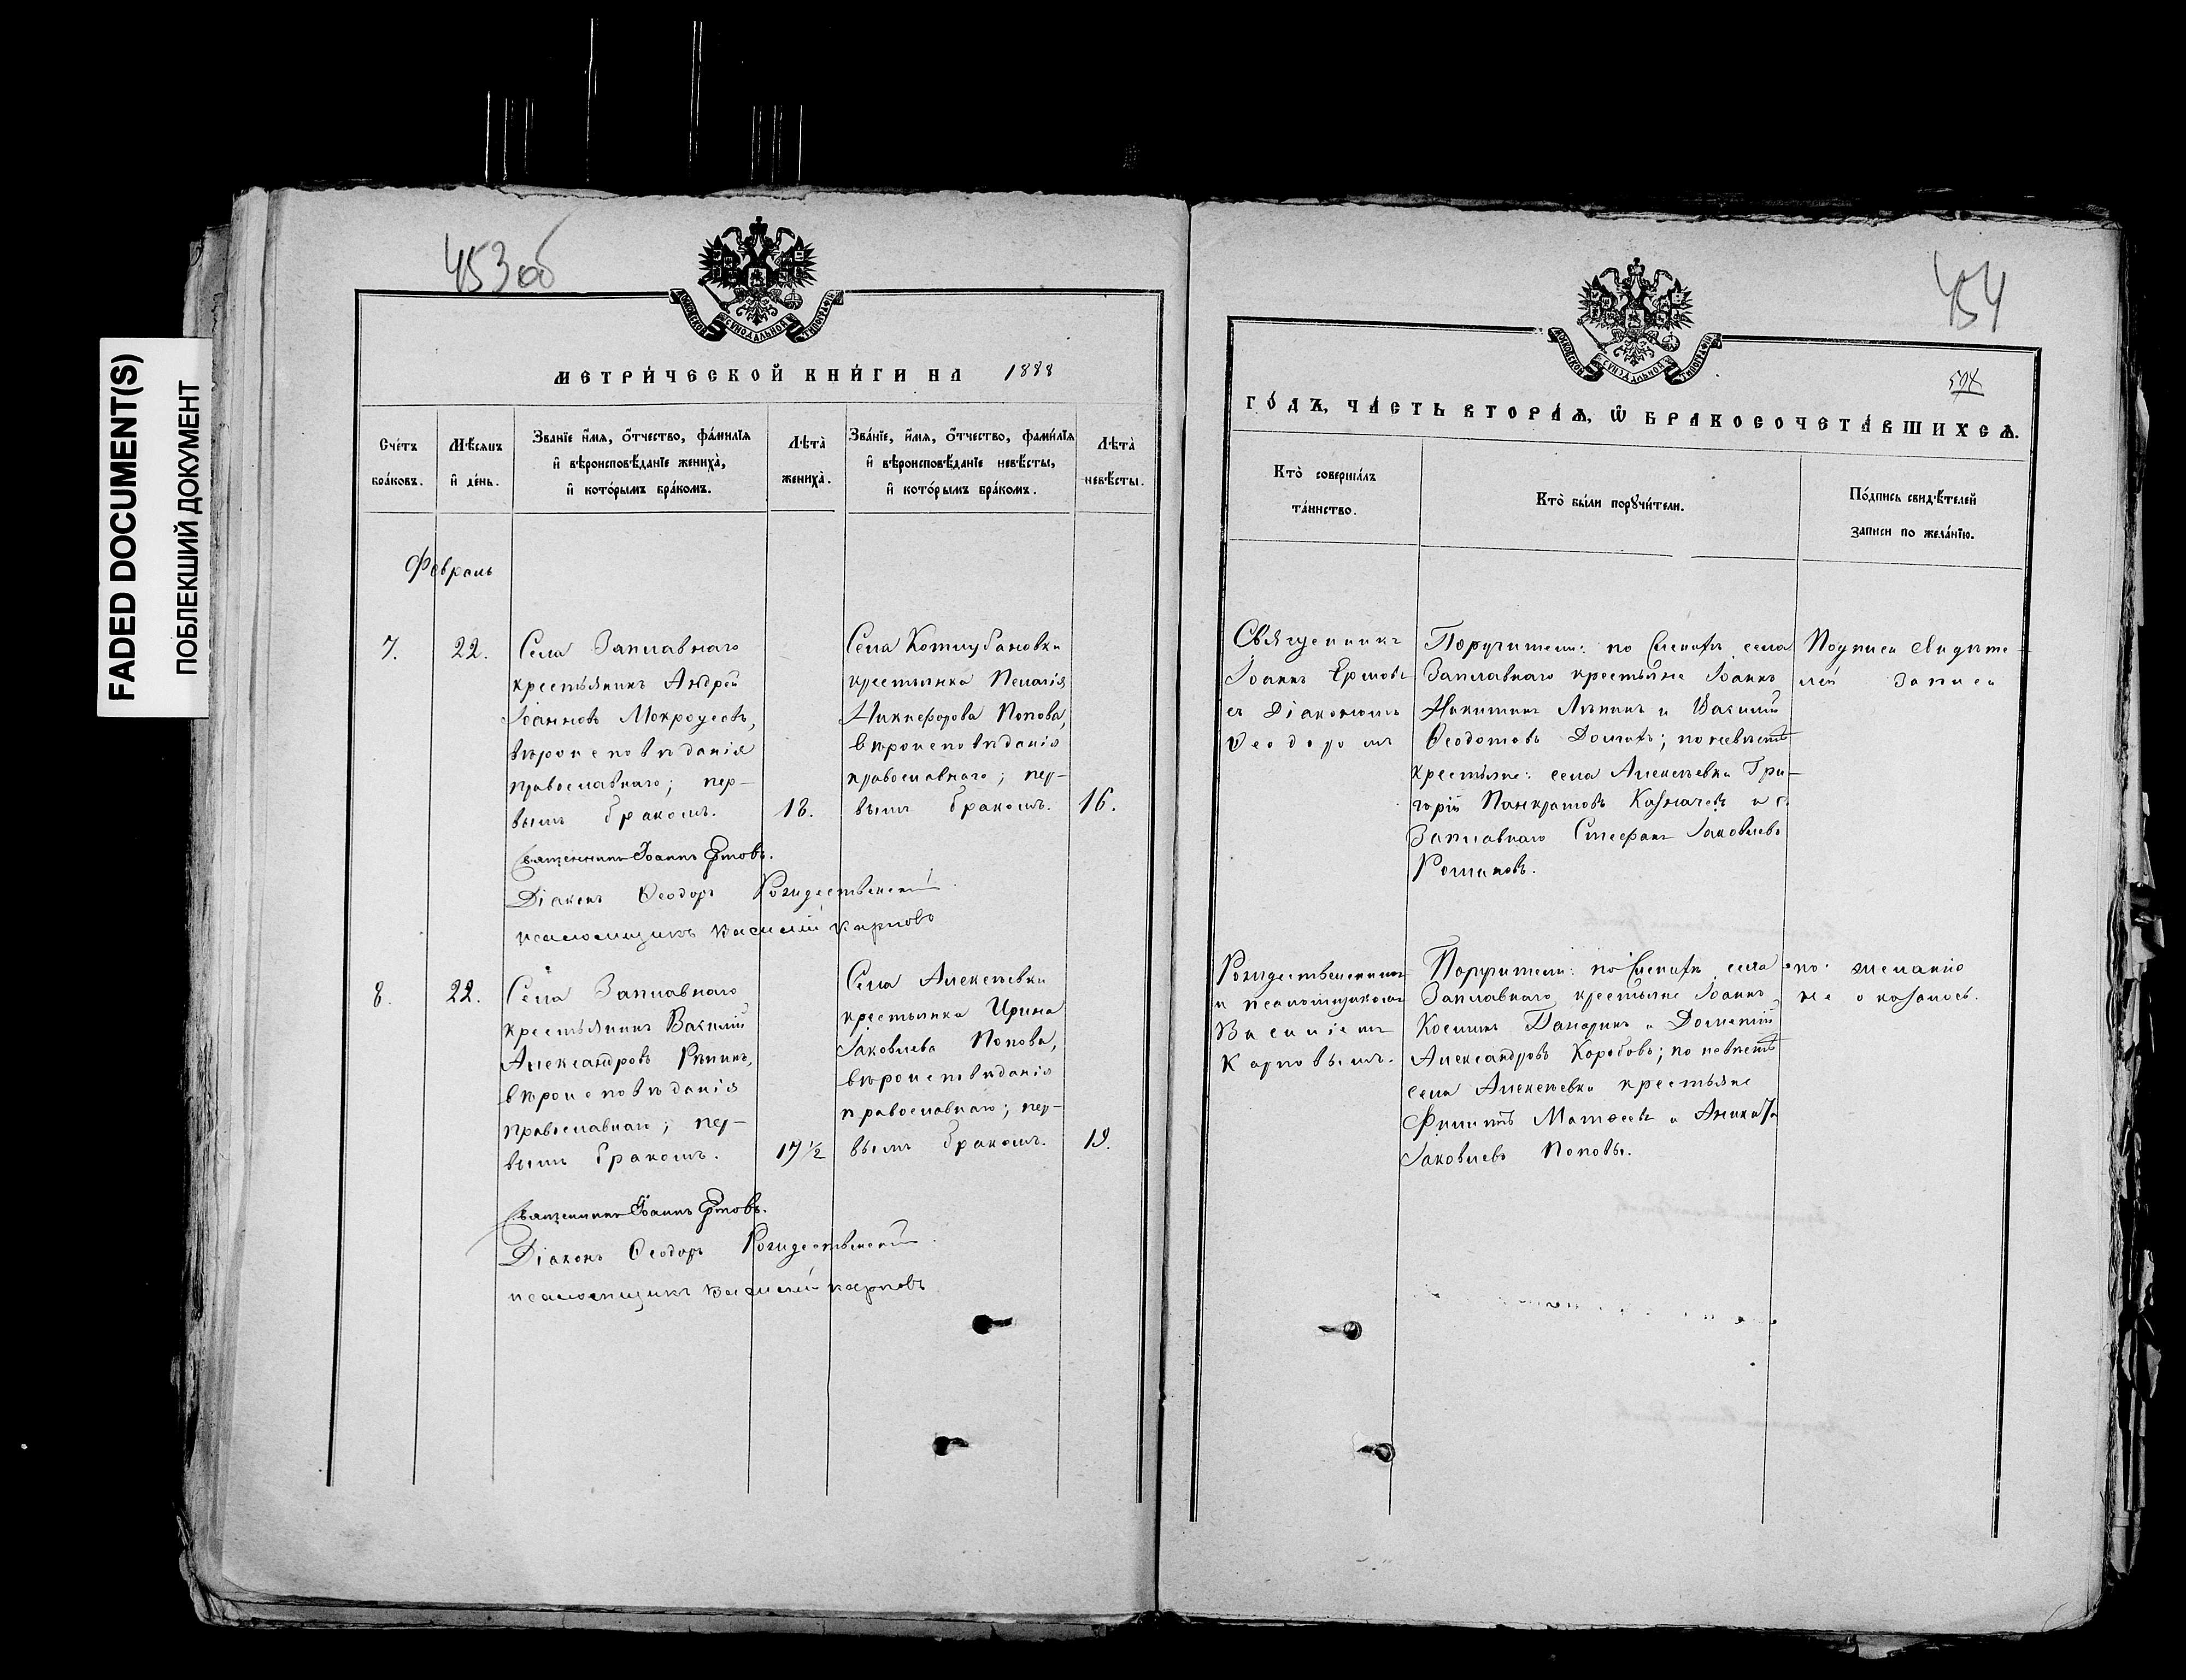 FADED DOCUMENT(S)
ПОБЛЕКШИЙ ДОКУМЕНТ
453об
МОСКОВСКОЙ СѴНОДАЛЬНОЙ ТИПОГРАФІИ
МЕТРИ́ЧЕСКОЙ КНИ́ГИ НА 1888
Сче́тъ бра́ковъ.
Мѣ́сяцъ и҆ де́нь.
Зва́нїе и҆́мѧ, ѻ҆́тчество, фамі́лїѧ
и҆ вѣроисповѣ́данїе жениха̀,
и҆ кото́рымъ бра́комъ.
Лѣта̀ жениха̀.
Зва́нїе, и҆́мѧ, ѻ҆́тчество, фамі́лїѧ
и҆ вѣроисповѣ́данїе невѣ́сты,
и҆ кото́рымъ бра́комъ.
Лѣта̀ невѣ́сты.
Февраль
7.
22.
Села Заплавнаго
крестьянинъ Андрей
Іоанновъ Мокроусовъ,
вѣроисповѣданія
православнаго; пер-
вымъ бракомъ.
18.
Села Котлубановки
крестьянка Пелагія
Никифорова Попова,
вѣроисповѣданія
православнаго; пер-
вымъ бракомъ.
16.
Священникъ Іоаннъ Ермовъ.
Діаконъ Ѳеодоръ Рождественскій
псаломщикъ Василій Карповъ
8.
22.
Села Заплавнаго
крестьянинъ Василій
Александровъ Рѣпинъ,
вѣроисповѣданія
православнаго; пер-
вымъ бракомъ.
17 1/2
Села Алексѣевки
крестьянка Ирина
Іаковлева Попова,
вѣроисповѣданія
православнаго; пер-
вымъ бракомъ.
19.
Священникъ Іоаннъ Ермовъ.
Діаконъ Ѳеодоръ Рождественскій
псаломщикъ Василій Карповъ
454
МОСКОВСКОЙ СѴНОДАЛЬНОЙ ТИПОГРАФІИ
ГО́ДЪ, ЧА́СТЬ ВТОРА́Ѧ, Ѽ БРАКОСОЧЕТА́ВШИХСѦ.
Кто̀ соверша́лъ
та́инство.
Кто̀ бы́ли порꙋчи́тели.
По́дпись свидѣ́телей
записи по жела́нїю.
Священникъ
Іоаннъ Ермовъ
съ Діакономъ
Ѳеодоромъ
Поручители: по женихѣ села
Заплавнаго крестьяне Іоаннъ
Никитинъ Лѣпинъ и Василій
Ѳедотовъ Долговъ; по невѣстѣ
крестьяне: села Алексѣевки Гри-
горій Панкратовъ Казначеевъ и с.
Заплавнаго Стефанъ Іаковлевъ
Романовъ.
Подписи свидѣте-
лей записи
Рождественскимъ
и псаломщикомъ
Василіемъ
Карповымъ.
Поручители: по женихѣ села
Заплавнаго крестьяне Іоаннъ
Косминъ Панаринъ и Дометій
Александровъ Коробовъ; по невѣстѣ
села Алексѣевки крестьяне
Филиппъ Матѳеевъ и Аникита
Іаковлевъ Поповы.
по желанію
не оказалось.